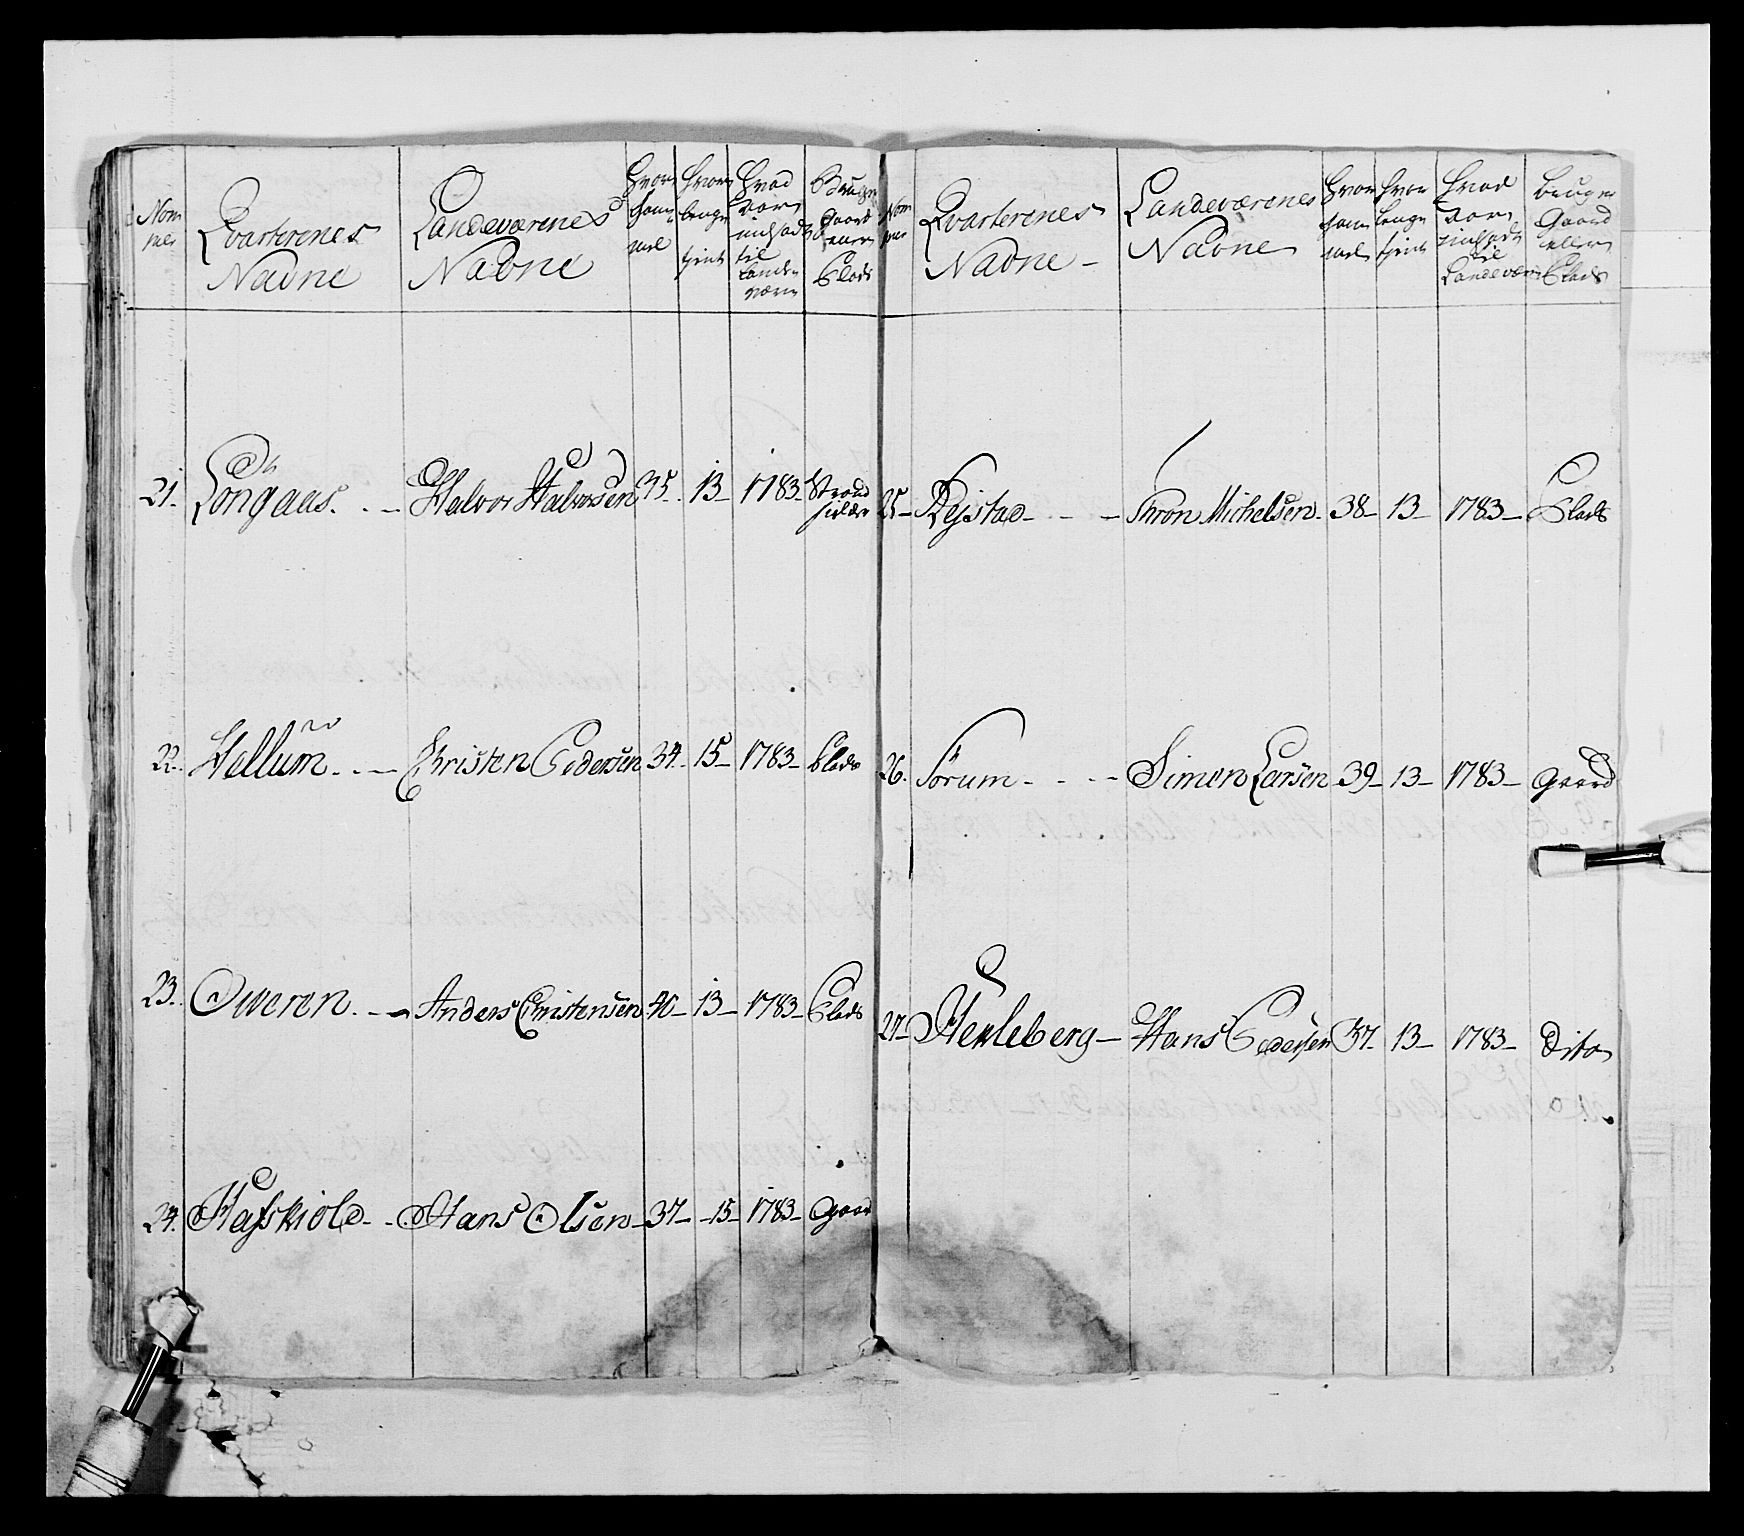 Nom
mer
Qvarterenes
Navne
Landeværenes
Navne
Hvor
gam̄
mel
Hvor
lenge
tjent
Hvad
Aar
indsadt
til
Lande
værn
Bruger
Gaard
eller
Plads
21. Löngaas. - - Halvor Halvorsen 35. 13 - 1783 -
22. Hellum. - - Christen Pedersen 34. 15 - 1783 - Plads
23. Oweren. - - Anders Christensen 40 - 13 - 1783 - Plads
24. Hafskiold - - Hans Olsen - 37 - 15 - 1783 - Gaard
Nom
mer
Qvarterenes
Navne -
Landeværenes
Navne
Hvor
gam̄
mel
Hvor
lenge
tjent
Hvad
Aar
indsadt
til
Landeværn
Bruger
Gaard
eller
Plads
25 - Rejstad - - - Thron Michelsen - 38 - 13 - 1783 - Plads
26. Sörum - - - Simen Larsen 39 - 13 - 1783 - Gaard
27 - Herleberg - Hans Pedersen 37 - 13 - 1783 - Dito